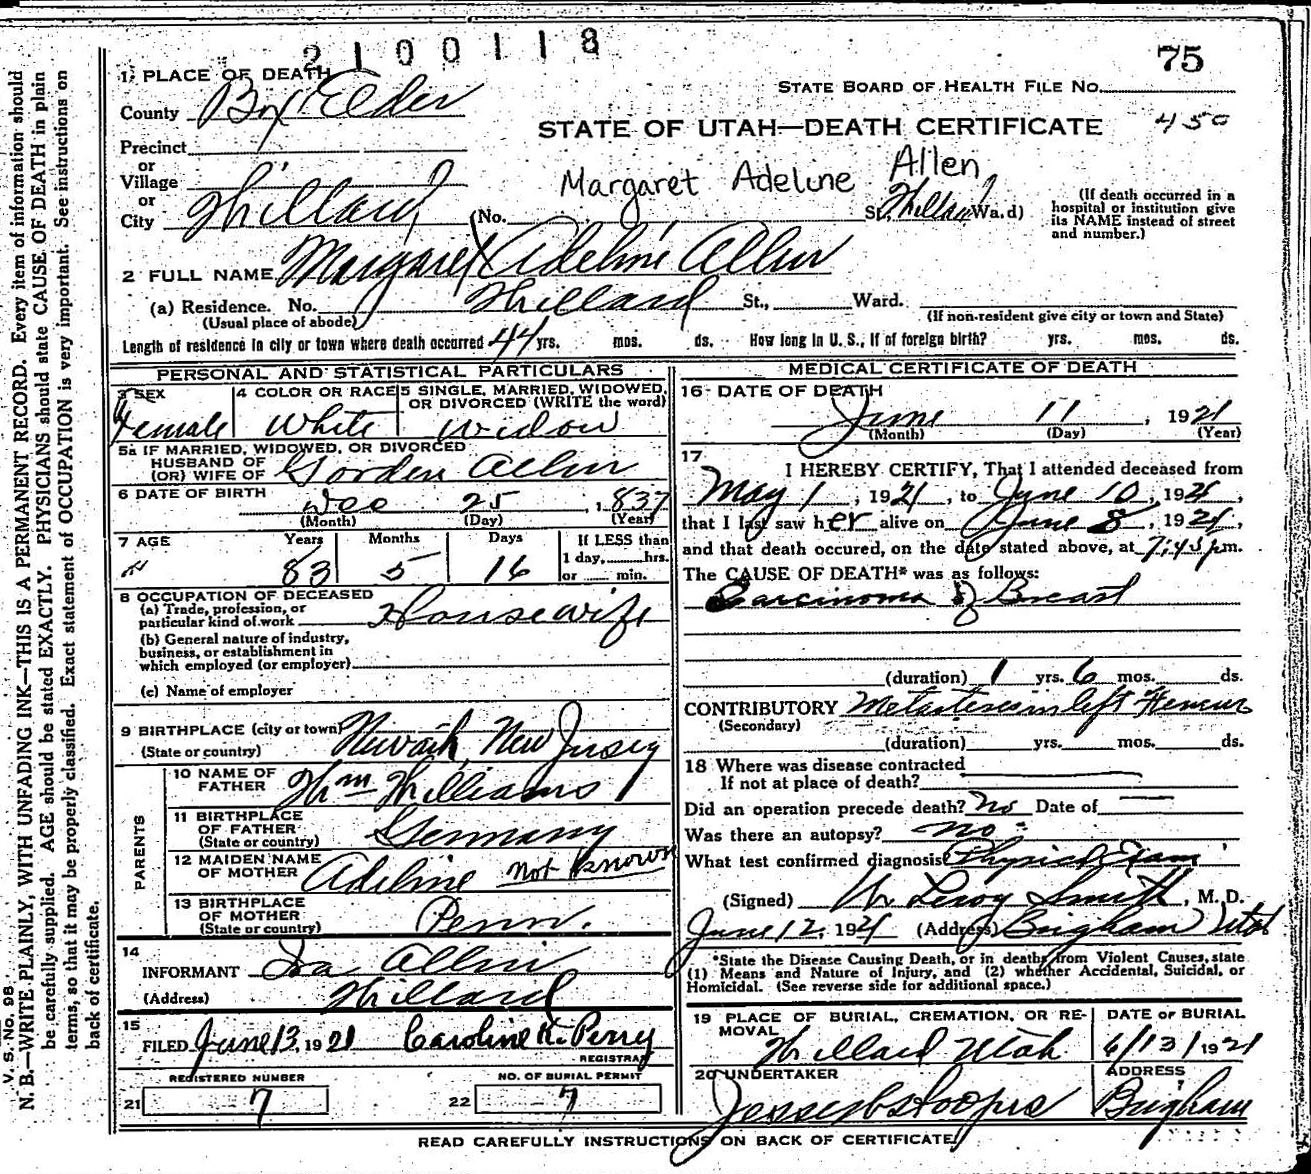 2100118
75
1 PLACE OF DEATH
STATE BOARD OF HEALTH FILE No.
County Box Elder
STATE OF UTAH—DEATH CERTIFICATE 450
Precinct
or
Village
or
City Willard
Margaret Adeline Allen
(No. St. Willard Ward)
(If death occurred in a
hospital or institution give
its NAME instead of street
and number.)
2 FULL NAME Margaret Adeline Allen
(a) Residence. No. Willard St., Ward.
(Usual place of abode)
(If non-resident give city or town and State)
Length of residence in city or town where death occurred 44 yrs. mos. ds. How long in U. S., if of foreign birth? yrs. mos. ds.
PERSONAL AND STATISTICAL PARTICULARS
3 SEX
Female
4 COLOR OR RACE
White
5 SINGLE, MARRIED, WIDOWED,
OR DIVORCED (WRITE the word)
Widow
5a IF MARRIED, WIDOWED, OR DIVORCED
HUSBAND OF
(OR) WIFE OF Gorden Allen
6 DATE OF BIRTH
Dec 25, 1837
(Month) (Day) (Year)
7 AGE Years Months Days
83 5 16
If LESS than
1 day, hrs.
or min.
8 OCCUPATION OF DECEASED
(a) Trade, profession, or
particular kind of work Housewife
(b) General nature of industry,
business, or establishment in
which employed (or employer)
(c) Name of employer
9 BIRTHPLACE (city or town) Newark, New Jersey
(State or country)
PARENTS
10 NAME OF
FATHER Wm Williams
11 BIRTHPLACE
OF FATHER Germany
(State or country)
12 MAIDEN NAME
OF MOTHER Adeline not known
13 BIRTHPLACE
OF MOTHER Penn.
(State or country)
14
INFORMANT Ira Allen
(Address) Willard
15
FILED June 13, 1921 Caroline K. Perry
REGISTRAR
REGISTERED NUMBER
21 7
NO. OF BURIAL PERMIT
22 7
MEDICAL CERTIFICATE OF DEATH
16 DATE OF DEATH
June 11, 1921
(Month) (Day) (Year)
17
I HEREBY CERTIFY, That I attended deceased from
May 1, 1921, to June 10, 1921,
that I last saw her alive on June 8, 1921,
and that death occured, on the date stated above, at 7:45 pm.
The CAUSE OF DEATH* was as follows:
Carcinoma of Breast
(duration) 1 yrs. 6 mos. ds.
CONTRIBUTORY Metastases in left Femur
(Secondary)
(duration) yrs. mos. ds.
18 Where was disease contracted
If not at place of death?
Did an operation precede death? No Date of
Was there an autopsy? no
What test confirmed diagnosis? Physical Exam
(Signed) W Leroy Smith, M. D.
June 12, 1921 (Address) Brigham Utah
*State the Disease Causing Death, or in deaths from Violent Causes, state
(1) Means and Nature of Injury, and (2) whether Accidental, Suicidal, or
Homicidal. (See reverse side for additional space.)
19 PLACE OF BURIAL, CREMATION, OR RE-
MOVAL
Willard Utah
DATE OF BURIAL
6/13/1921
20 UNDERTAKER
ADDRESS
Brigham
READ CAREFULLY INSTRUCTIONS ON BACK OF CERTIFICATE
V. S. No. 98
N. B.—WRITE PLAINLY, WITH UNFADING INK—THIS IS A PERMANENT RECORD. Every item of information should
be carefully supplied. AGE should be stated EXACTLY. PHYSICIANS should state CAUSE OF DEATH in plain
terms, so that it may be properly classified. Exact statement of OCCUPATION is very important. See instructions on
back of certificate.